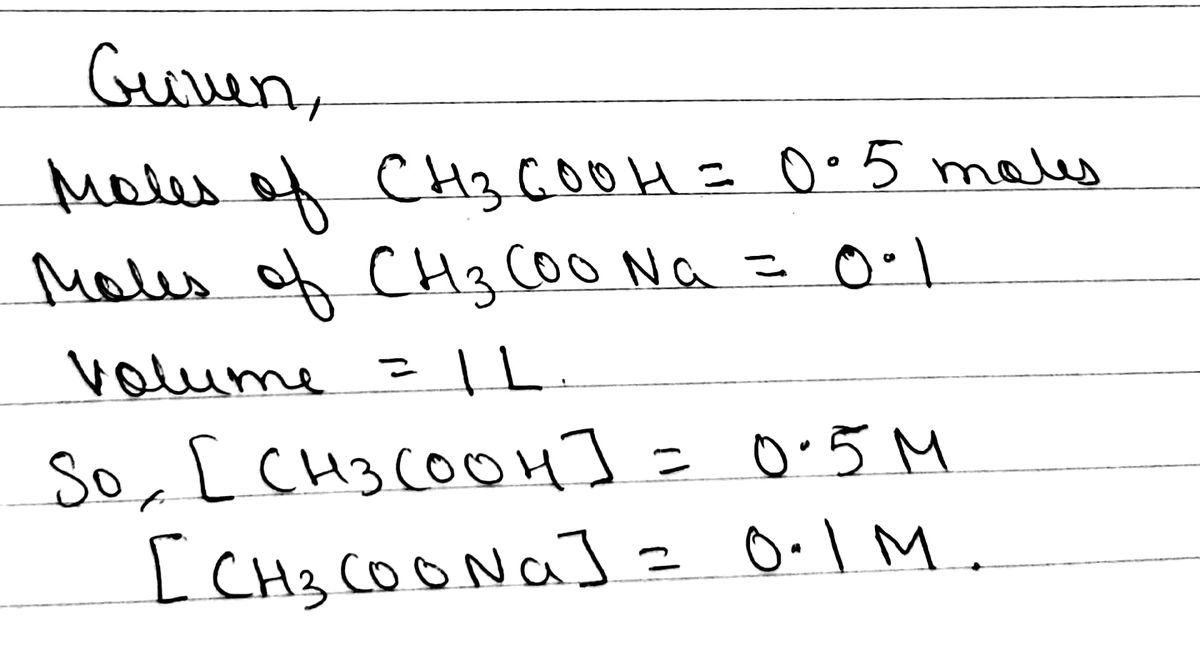 Given,
Moles of CH3COOH = 0.5 moles
Moles of CH3COONa = 0.1
Volume = 1L.
So, [CH3COOH] = 0.5 M
[CH3COONa] = 0.1 M.